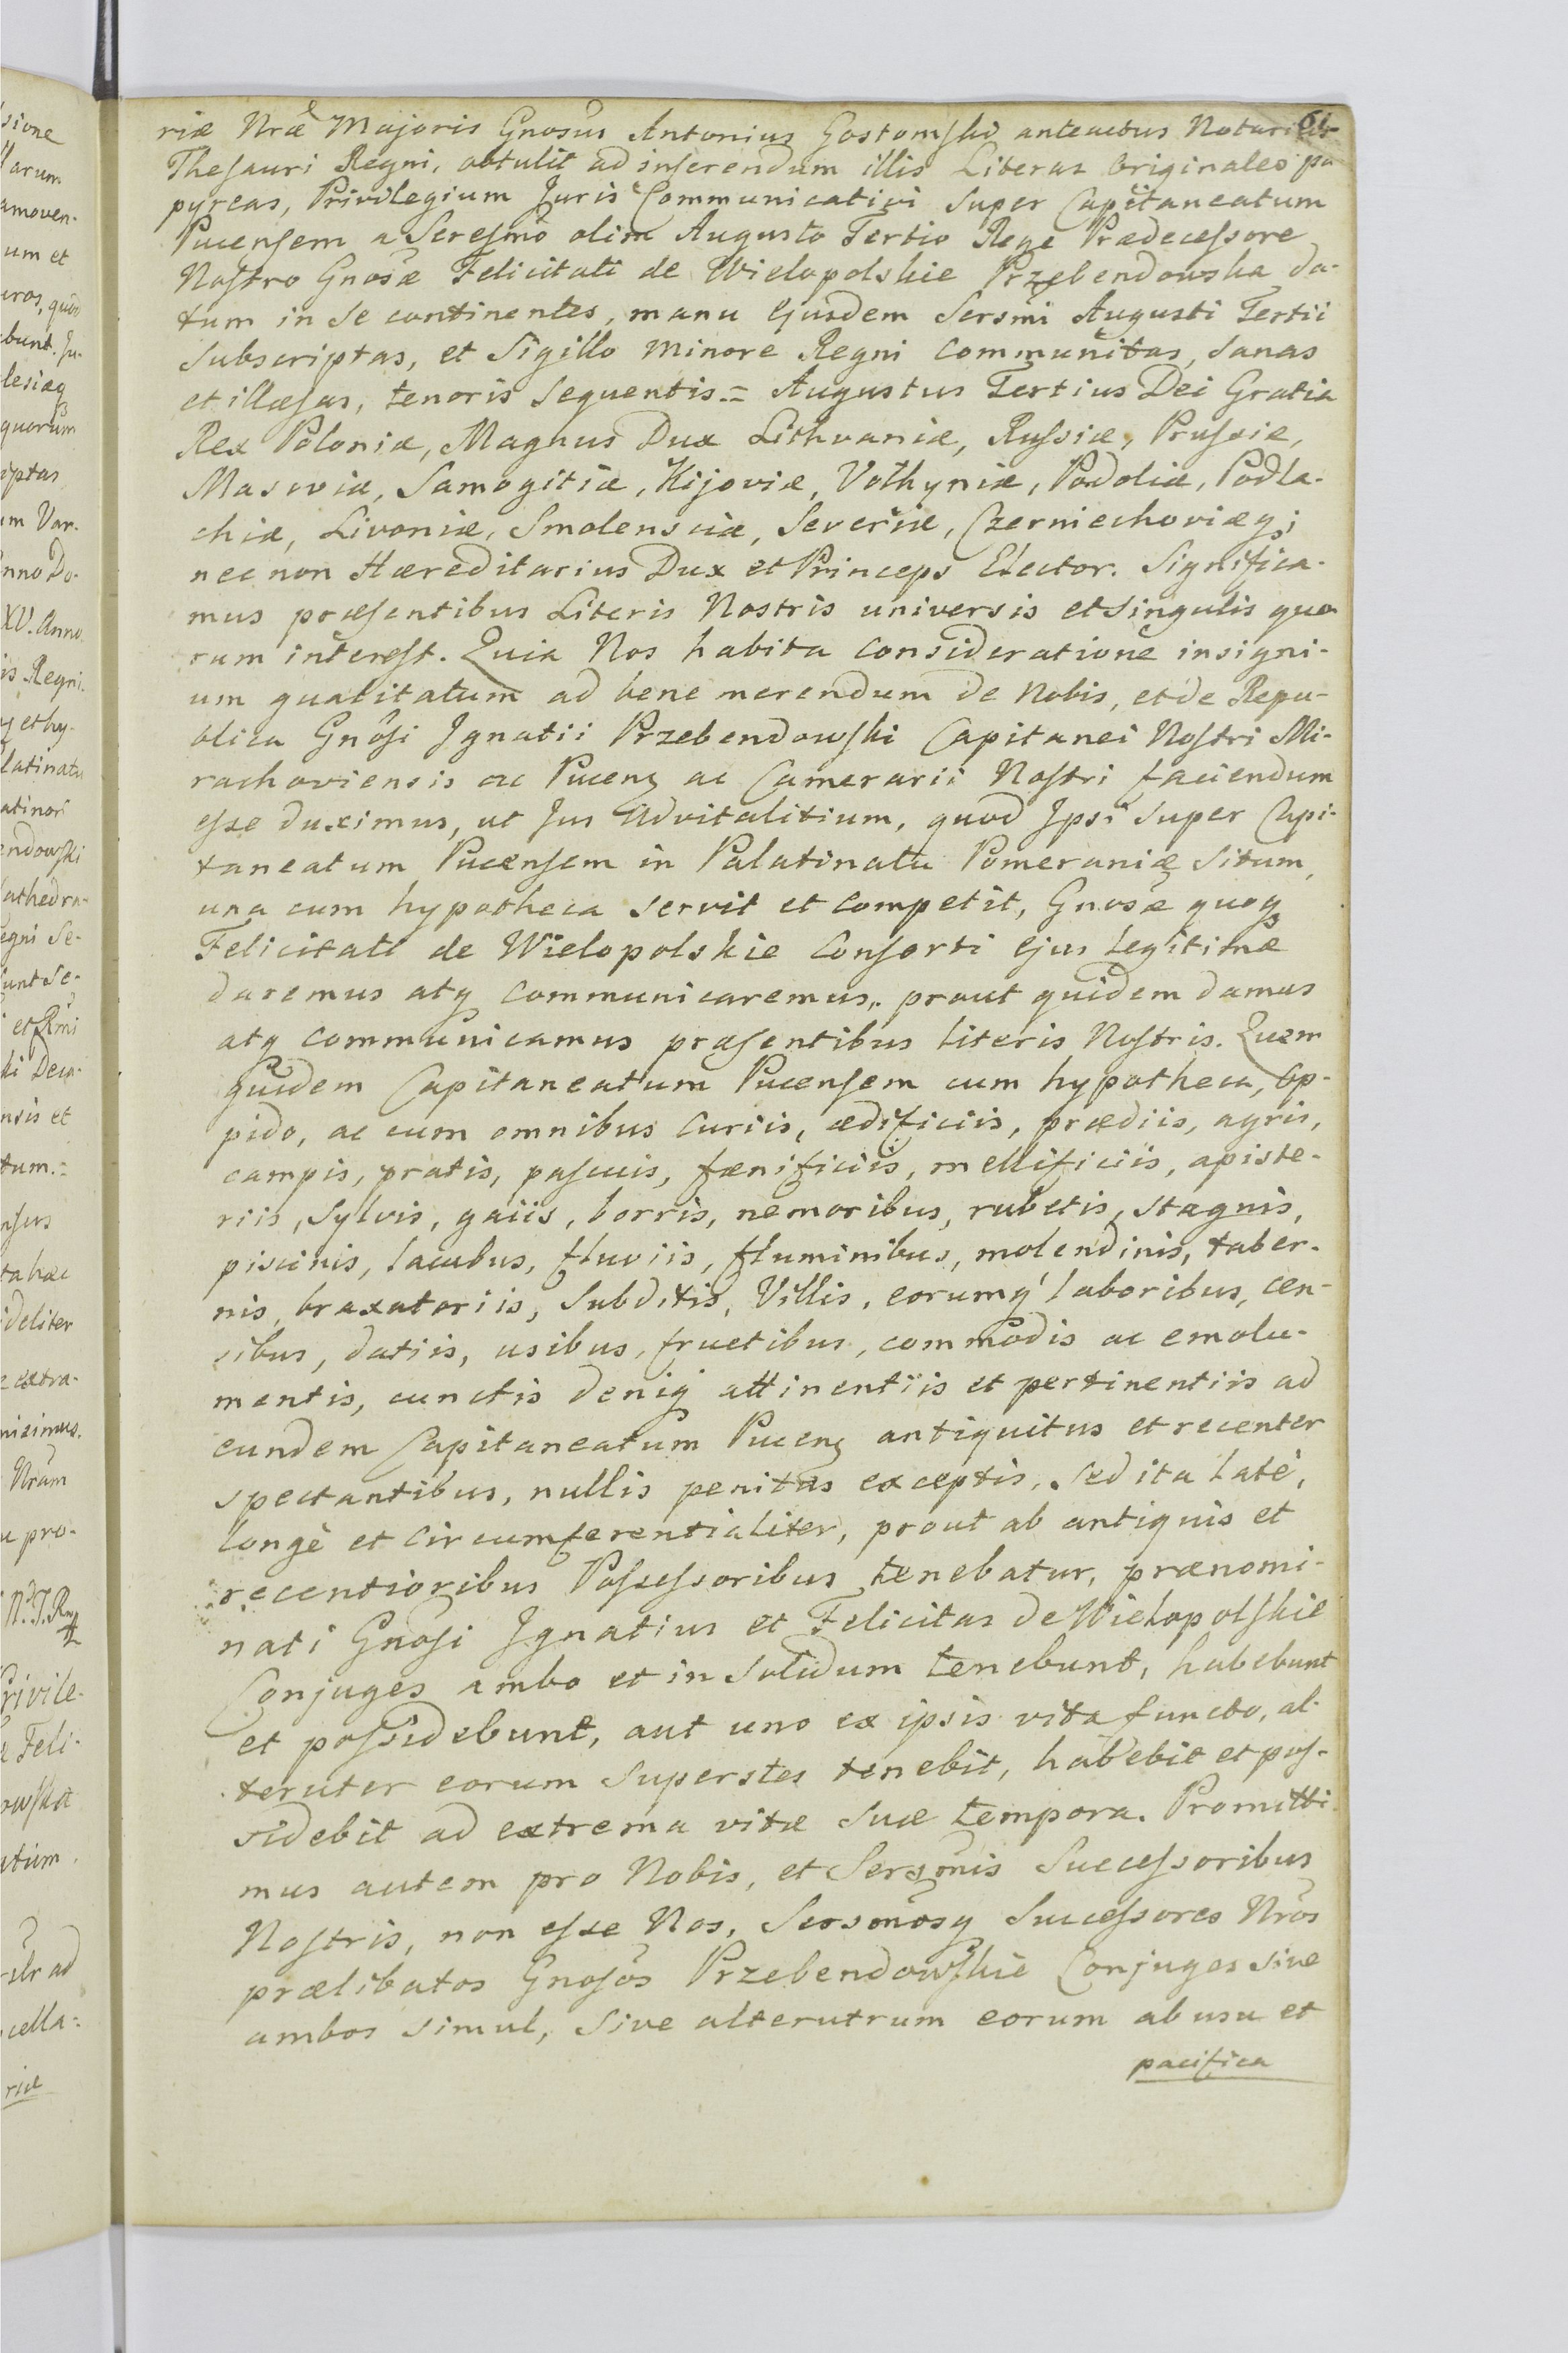 riæ Nræ Majoris Gnosus Antonius Gostomski anteactus Notarius
Thesauri Regni, obtulit ad inserendum illis Literas Originales pa
pyreas, Privilegium Juris Communicativi super Capitaneatum
Pucensem a Seresmo olim Augusto Tertio Rege Prædecessore
Nostro Gnosæ Felicitati de Wielopolskie Przebendowska da-
tum in se continentes, manu ejusdem Sersmi Augusti Tertii
subscriptas, et Sigillo Minore Regni communitas, sanas
et illæsas, tenoris sequentis.= Augustus Tertius Dei Gratia
Rex Poloniæ, Magnus Dux Lithvaniæ, Russiæ, Prussiæ,
Masoviæ, Samogitiæ, Kijoviæ, Volhyniæ, Podoliæ, Podla-
chiæ, Livoniæ, Smolensciæ, Severiæ, Czerniechoviæq;
nec non Hæreditarius Dux et Princeps Elector. Significa-
mus præsentibus Literis Nostris universis et singulis quo
rum interest. Quia Nos habita consideratione insigni-
um qualitatum ad bene merendum de Nobis, et de Repu-
blica Gnosi Ignatii Przebendowski Capitanei Nostri Mi-
rachoviensis ac Pucen ac Camerarii Nostri faciendum
esse duximus, ut Jus Advitalitium, quod Ipsi super Capi-
taneatum Pucensem in Palatinatu Pomeraniæ situm,
una cum hypotheca servit et competit, Gnosæ quoq
Felicitati de Wielopolskie Consorti ejus legitimæ
daremus atq communicaremus, prout quidem damus
atq communicamus præsentibus literis Nostris. Quem
quidem Capitaneatum Pucensem cum hypotheca, Op-
pido, ac cum omnibus curiis, ædificiis, prædiis, agris,
campis, pratis, pascuis, fænificiis, mellificiis, apiste-
riis, sylvis, gaiis, borris, nemoribus, rubetis, stagnis,
piscinis, lacubus, fluviis, fluminibus, molendinis, taber-
nis, braxatoriis, Subditis, Villis, eorumq laboribus, cen-
sibus, datiis, usibus, fructibus, commodis ac emolu-
mentis, cunctis deniq attinentiis et pertinentiis ad
eundem Capitaneatum Pucen antiquitus et recenter
spectantibus, nullis penitus exceptis, sed ita latè,
longè et circumferentialiter, prout ab antiquis et
recentioribus Possessoribus tenebatur, prænomi-
nati Gnosi Ignatius et Felicitas de Wielopolskie
Conjuges ambo et in solidum tenebunt, habebunt
et possidebunt, aut uno ex ipsis vita functo, al-
teruter eorum superstes tenebit, habebit et pos-
sidebit ad extrema vitæ suæ tempora. Promitti-
mus autem pro Nobis, et Sersmis Successoribus
Nostris, non esse Nos, Sersmosq Successores Nros
prælibatos Gnosos Przebendowskie Conjuges sive
ambos simul, sive alterutrum eorum ab usu et
pacifica